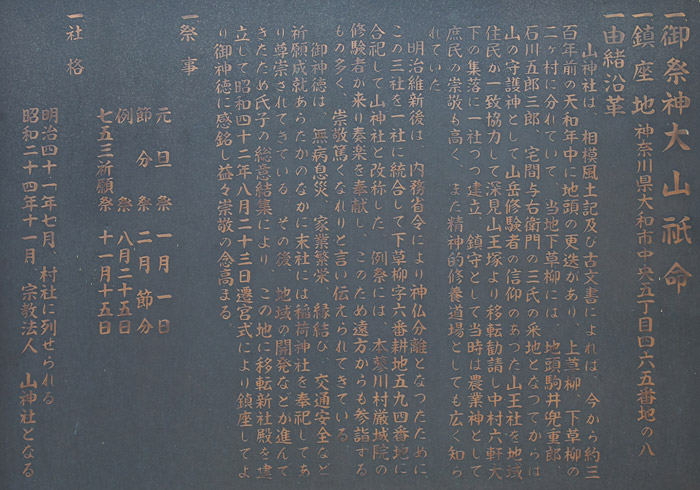 一御祭神大山祇命
一鎮座地 神奈川県大和市中央五丁目四六五番地の八
一由緒沿革
山神社は、相模風土記及び古文書によれば、今から約三
百年前の天和年中に地頭の更迭があり、上草柳、下草柳の
二ヶ村に分れていて、当地下草柳には、地頭駒井兜重郎
石川五郎三郎、宅間与右衛門の三氏の采地となつてからは
山の守護神として山岳修験者の信仰のあつた山王社を地域
住民が一致協力して深見山王塚より移転勧請し中村六軒大
下の集落に一社づつ建立、鎮守として当時は農業神として
庶民の崇敬も高く、また精神的修養道場としても広く知ら
れていた
明治維新後は、内務省令により神仏分離となつたために
この三社を一社に統合して下草柳字六番耕地五九四番地に
合祀して山神社と改称した 例祭には、本蓼川村厳城院の
修験者が来り奏楽を奉献し、このため遠方からも参詣する
もの多く、崇敬篤くなれりと言い伝えられてきている。
御神徳は、無病息災、家業繁栄、縁結び、交通安全など
祈願成就あらたかのなかに末社には稲荷神社を奉祀してあ
り尊崇されてきている。その後、地域の開発などが進んで
きたため氏子の総意結集により、この地に移転新社殿を建
立して昭和四十二年八月二十三日遷宮式により鎮座してよ
り御神徳に感銘し益々崇敬の念高まる。
一祭事
元旦祭 一月一日
節分祭 二月節分
例祭 八月二十五日
七五三祈願祭 十一月十五日
一社格
明治四十一年七月、村社に列せられる
昭和二十四年十一月、宗教法人 山神社となる